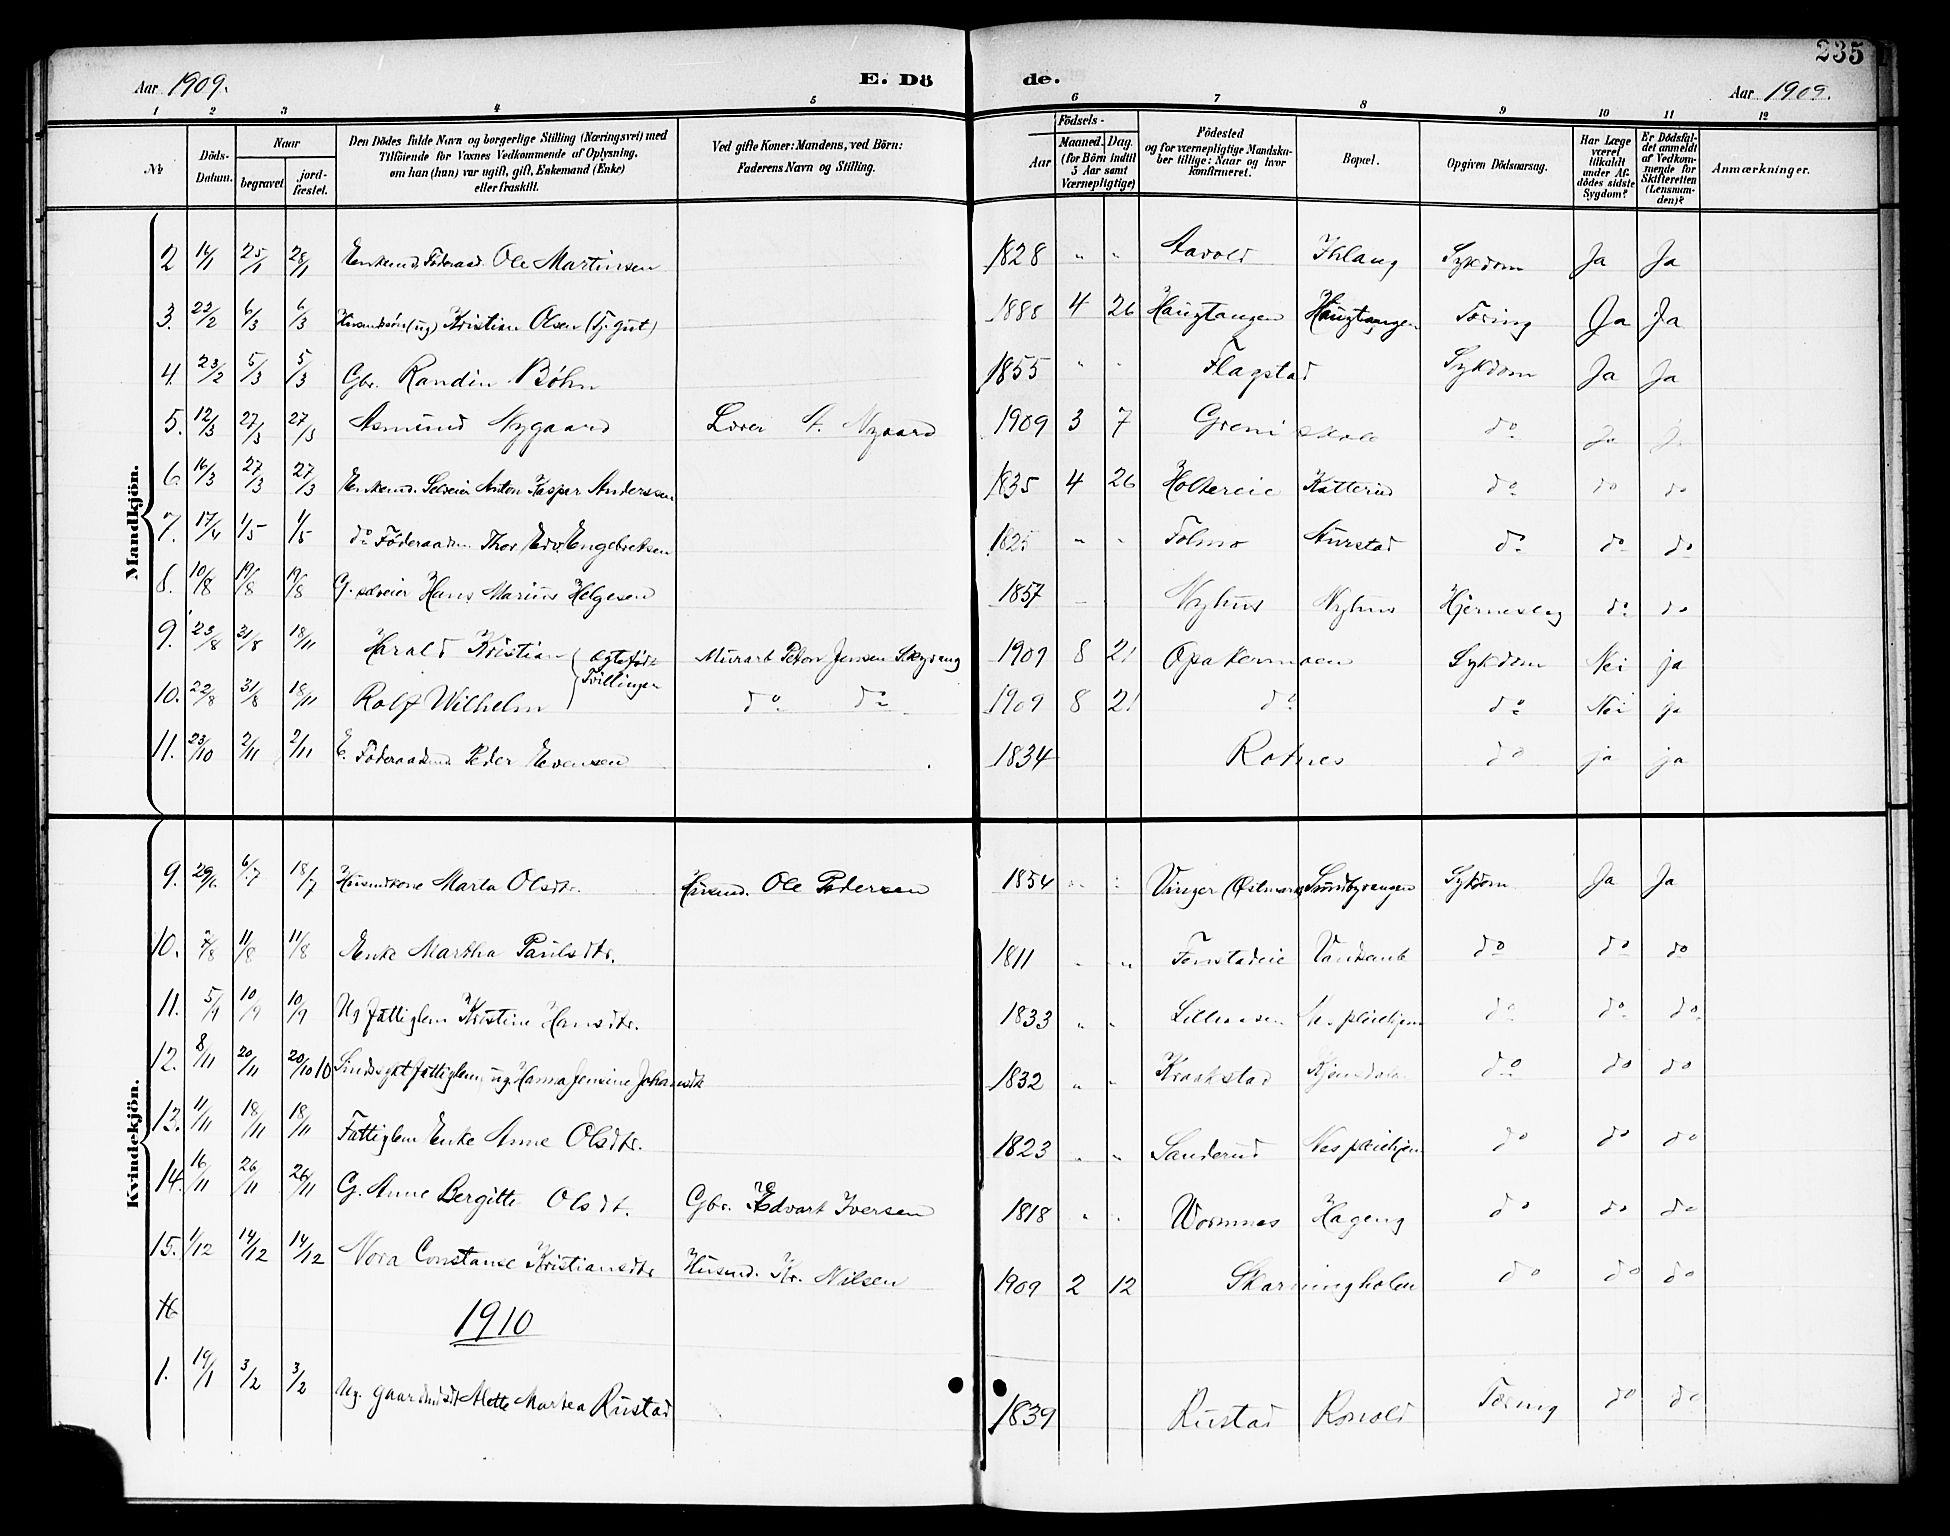 235
Aar 1909. E. Dö de. Aar 1909.
1 2 3 4 5 6 7 8 9 10 11 12
№ Döds-Datum. Naar begravet jordfæstet. Den Dödes fulde Navn og borgerlige Stilling (Næringsvei) med Tilföiende for Voxnes Vedkommende af Oplysning, om han (hun) var ugift, gift, Enkemand (Enke) eller fraskilt. Ved gifte Koner: Mandens, ved Börn: Faderens Navn og Stilling. Födsels- Aar Maaned. Dag. (for Börn indtil 5 Aar samt Værnepligtige) Födested og for værnepligtige Mandskaber tillige: Naar og hvor konfirmeret. Bopæl. Opgiven Dödsaarsag. Har Læge været tilkaldt under Afdödes sidste Sygdom? Er Dödsfaldet anmeldt af Vedkommende for Skifteretten (Lensmanden)? Anmærkninger.
Mandkjön.
2 14/1 25/1 28/1 Enkemd. Føderaad. Ole Martinsen 1828 " " Aavold Ihlang Sykdom Ja Ja
3. 22/2 6/3 6/3 (ug) Kristian Olsen (Tj. gut) 1888 4 26 Haugtangen Haugtangen Tæring Ja Ja
4. 23/2 5/3 5/3 Gbr. Randin Bøhn 1855 " " Flagstad Sykdom Ja Ja
5. 12/3 27/3 27/3 Asmund Nygaard Lærer A. Nygaard 1909 3 7 Greni skole do Ja Ja
6. 16/3 27/3 27/3 Enkemd. Selveier Anton Kaspar Anderssen 1835 4 26 Holtereie Katterud do do do
7. 17/4 1/5 1/5 do Føderaadm. Thor Edv. Engebretsen 1825 " " Folmo Aurstad do do do
8. 10/8 19/8 19/8 G. selveier Hans Marius Helgesen 1857 Nyhus Nyhus Hjerneslag do do
9. 23/8 31/8 18/11 Harald Kristian } ægtefødte Tvillinger Murarb. Peton Jensen 1909 8 21 Opakermoen Sykdom Nei ja
10. 22/8 31/8 18/11 Rolf Wilhelm do do 1909 8 21 do do Nei ja
11. 23/10 2/11 2/11 E. Føderaadsmd Peder Evensen 1834 Rotnes do ja ja
Kvindekjön.
9. 29/6 6/7 18/7 Husmdkone Marta Olsdtr. Husmd. Ole Pedersen 1854 " " Vinger (Østmark) Sundbyvangen Sykdom Ja Ja
10. 2/8 11/8 11/8 Enke Martha Paulsdtr. 1811 " " do do do
11. 5/9 10/9 10/9 Ug fattiglem Kristine Hansdtr. 1833 " " do do do
12. 8/11 20/11 20/10 10 Sindssykt fattiglem, ug. Hanna Jensine Johansdt 1832 " " Kraakstad do do do
13. 11/11 18/11 18/11 Fattiglem Enke Anne Olsdtr. 1823 " " Sanderud Nes pleiehjem do do do
14. 16/11 26/11 26/11 G. Anne Bergitte Olsdt. Gbr. Edvart Iversen 1818 " " Wormnes Hageng do do do
15. 1/12 14/12 14/12 Nora Constanse Kristiansdtr Husmd. Kr. Nilsen 1909 2 12 Skarningholen do do do
16
1910
1. 19/1 3/2 3/2 Ug. gaardmdsdt Mette Martea Rustad 1839 Rustad Tæring do do